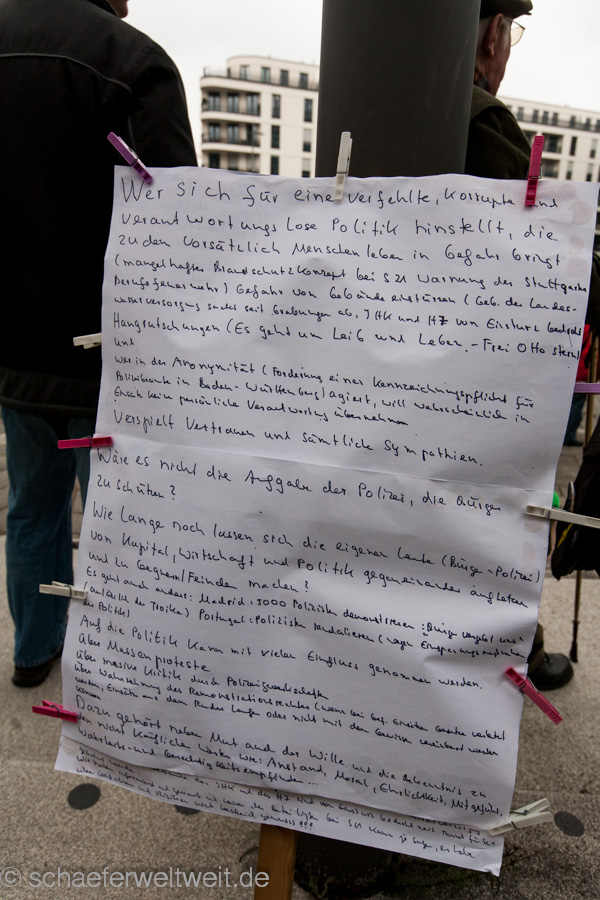 Wer sich für eine verfehlte, korrupte und
verantwortungslose Politik hinstellt, die
zu den vorsätzlich Menschenleben in Gefahr bringt
(mangelhaftes Brandschutzkonzept bei S21 Warnung der Stuttgarter
Berufsfeuerwehr) Gefahr von Gebäudeeinstürzen (Geb. der Landes-
wasserversorgung sackt seit Grabungen ab, IHK und HZ von Einsturz bedroht
Hangrutschungen (Es geht um Leib und Leben. - Frei Otto stern)
und
wer in der Anonymität (Forderung einer Kennzeichnungspflicht für
Polizisten in Baden-Württemberg) agiert, will wahrscheinlich in
keine persönliche Verantwortung übernehmen
Verspielt Vertrauen und sämtliche Sympathien.
Wäre es nicht die Aufgabe der Polizei, die Bürger
zu schützen?
Wie lange noch lassen sich die eigenen Leute (Bürger-Polizei)
von Kapital, Wirtschaft und Politik gegeneinander aufhetzen
und zu Gegnern/Feinden machen?
Es geht auch anders: Madrid: 5000 Polizisten demonstrieren: Bürger vergebt uns
(anlässlich der Troika) Portugal: Polizisten randalieren (wegen Einsparungsmaßnahmen
der Politik)
Auf die Politik kann mit vieler Einfluss genommen werden.
über Massenproteste
über massive Kritik durch Polizeigewerkschaften
über Wahrnehmung des Remonstrationsrechtes (wenn bei Einsätzen Gesetze verletzt
werden, Einsätze aus dem Ruder laufen oder nicht mit dem Gewissen vereinbart werden
können.
Dazu gehört neben Mut auch der Wille und die Erkenntnis zu
den nicht käuflichen Werten wie: Anstand, Moral, Ehrlichkeit, Mitgefühl,
Wahrheits- und Gerechtigkeitsempfinden...
IHK und das HZ sind von Einsturz bedroht
© schaeferweltweit.de